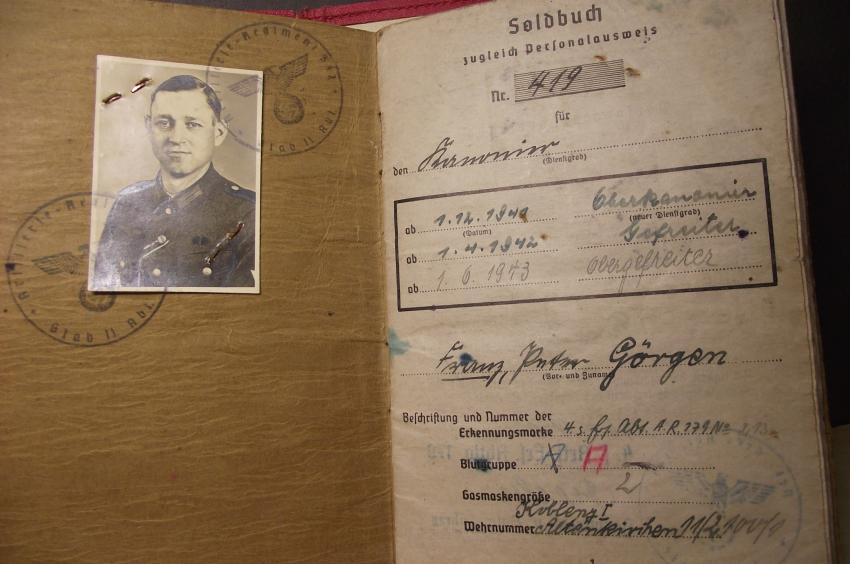 Artillerie-Regiment
Stab II Abt.
Artillerie-Regiment
Stab II Abt.
Soldbuch
zugleich Personalausweis
Nr. 419
für
den Kanonier
(Dienstgrad)
ab 1.12.1941 Oberkanonier
(Datum) (neuer Dienstgrad)
ab 1.4.1942 Gefreiter
ab 1.6.1943 Obergefreiter
Franz, Peter Görgen
(Vor- und Zuname)
Beschriftung und Nummer der
Erkennungsmarke 4. s. Abt. A.R. 179 No
Blutgruppe A A
Gasmaskengröße 2
Koblenz I
Wehrnummer Altenkirchen 11/2
1